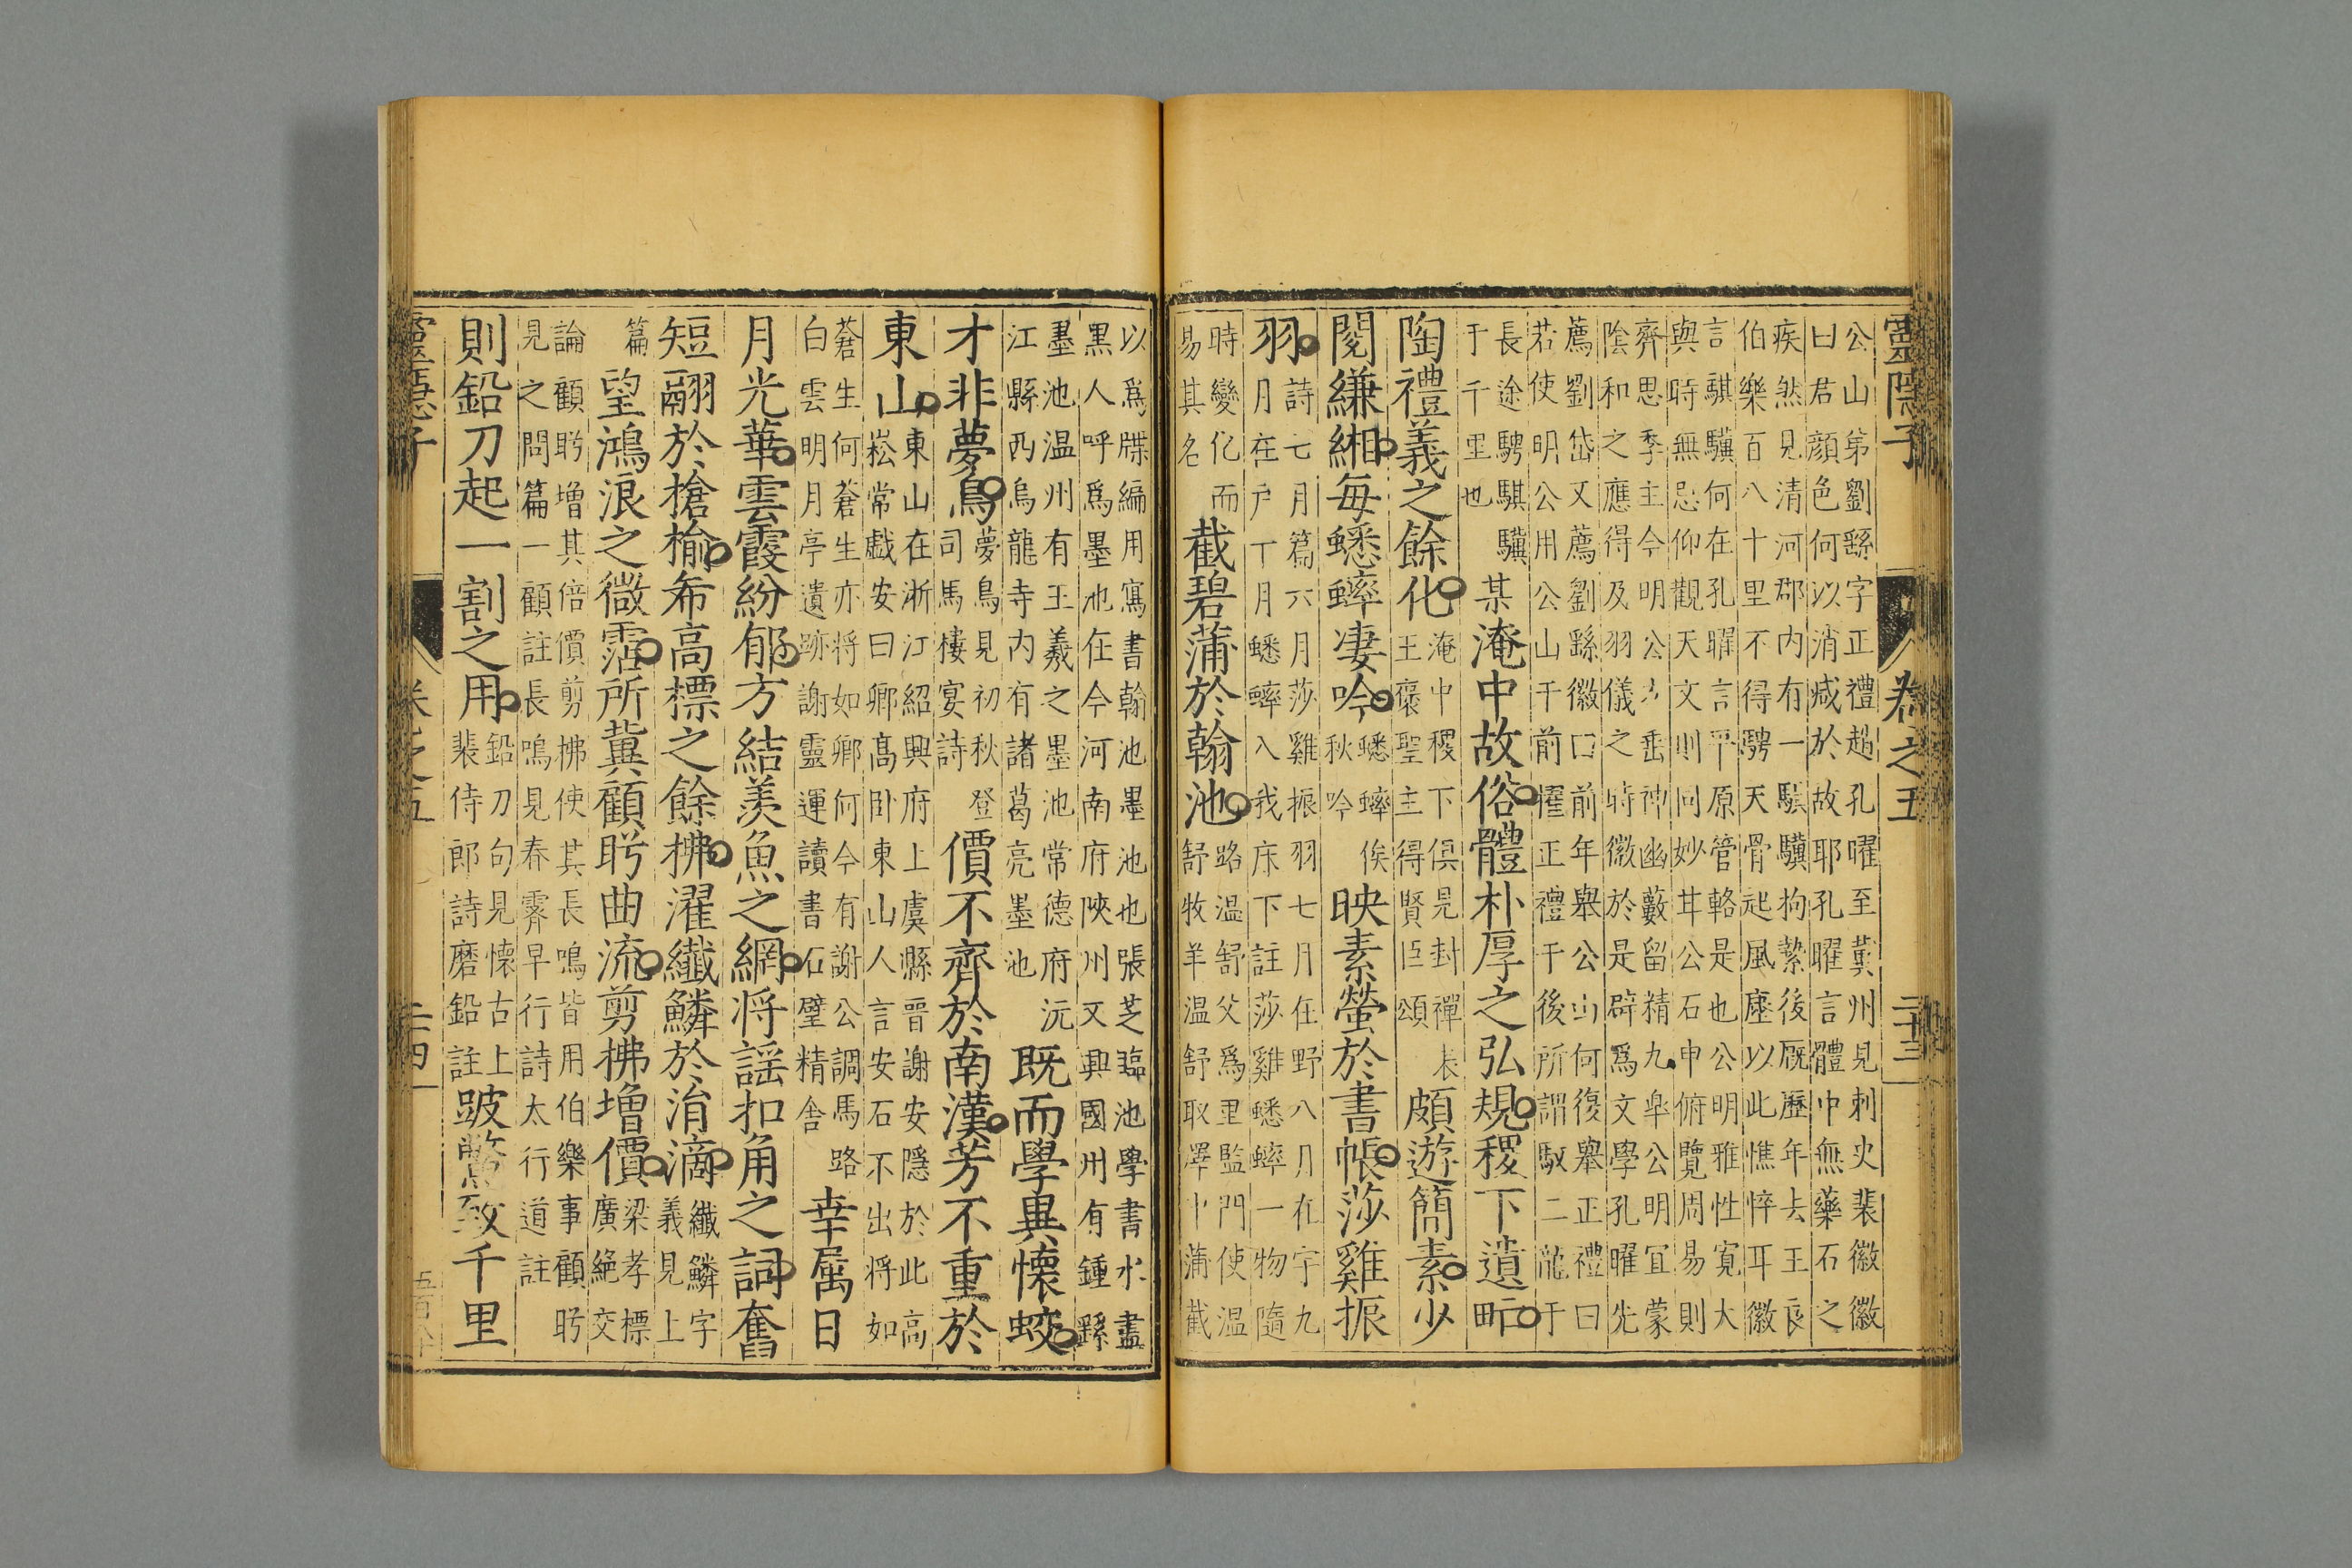 靈隱子 卷之五 二十三
公山弟劉繇字正禮趙孔曜至冀州見刺史裴徽徽
曰君顏色何以消減於故耶孔曜言體中無藥石之
疾然見清河郡內有一騏驥拘縶後厩歷年去王良
伯樂百八十里不得騁天骨起風塵以此憔悴耳徽
言騏驥何在孔曜言平原管輅是也公明雅性寬大
與時無忌仰觀天文則同妙甘公石申俯覽周易則
齊思季主今明公方垂神幽藪留精九皋公明宜蒙
陰和之應得及羽儀之時徽於是辟為文學孔曜先
薦劉岱又薦劉繇徽曰前年舉公山何復舉正禮曰
若使明公用公山于前擢正禮于後所謂馭二龍于
長途騁騏驥
于千里也
某淹中故俗體朴厚之弘規稷下遺町
陶禮義之餘化
淹中稷下俱見封禪表
王襃聖主得賢臣頌
頗遊簡素少
閱縑緗每蟋蟀凄吟
蟋蟀俟
秋吟
映素螢於書帳莎雞振
羽
詩七月篇六月莎雞振羽七月在野八月在宇九
月在戶丁月蟋蟀入我床下註莎雞蟋蟀一物隨
時變化而
易其名
截碧蒲於翰池
路温舒父為里監門使温
舒牧羊温舒取澤中蒲截
以為牒編用寫書翰池墨池也張芝臨池學書水盡
黑人呼為墨池在今河南府陝州又興國州有鍾繇
墨池温州有王羲之墨池常德府沅
江縣西烏龍寺內有諸葛亮墨池
既而學異懷蛟
才非夢鳥
夢鳥見初秋登
司馬樓宴詩
價不齊於南漢芳不重於
東山
東山在浙江紹興府上虞縣晉謝安隱於此高
崧常戲安曰卿高卧東山人言安石不出將如
蒼生何蒼生亦将如卿何今有謝公調馬路
白雲明月亭遺跡謝靈運讀書石壁精舍
幸屬日
月光華雲霞紛郁方結羨魚之網将謡扣角之詞奮
短翮於搶榆希高標之餘拂濯纖鱗於涓滴
纖鱗字
義見上
篇
望鴻浪之微霑所冀顧眄曲流剪拂增價
梁孝標
廣絶交
論顧眄增其倍價剪拂使其長鳴皆用伯樂事顧眄
見之問篇一顧註長鳴見春霽早行詩太行道註
則鉛刀起一割之用
鉛刀句見懷古上
裴侍郎詩磨鉛註
跛鱉致千里
靈隱子 卷之五 二十四